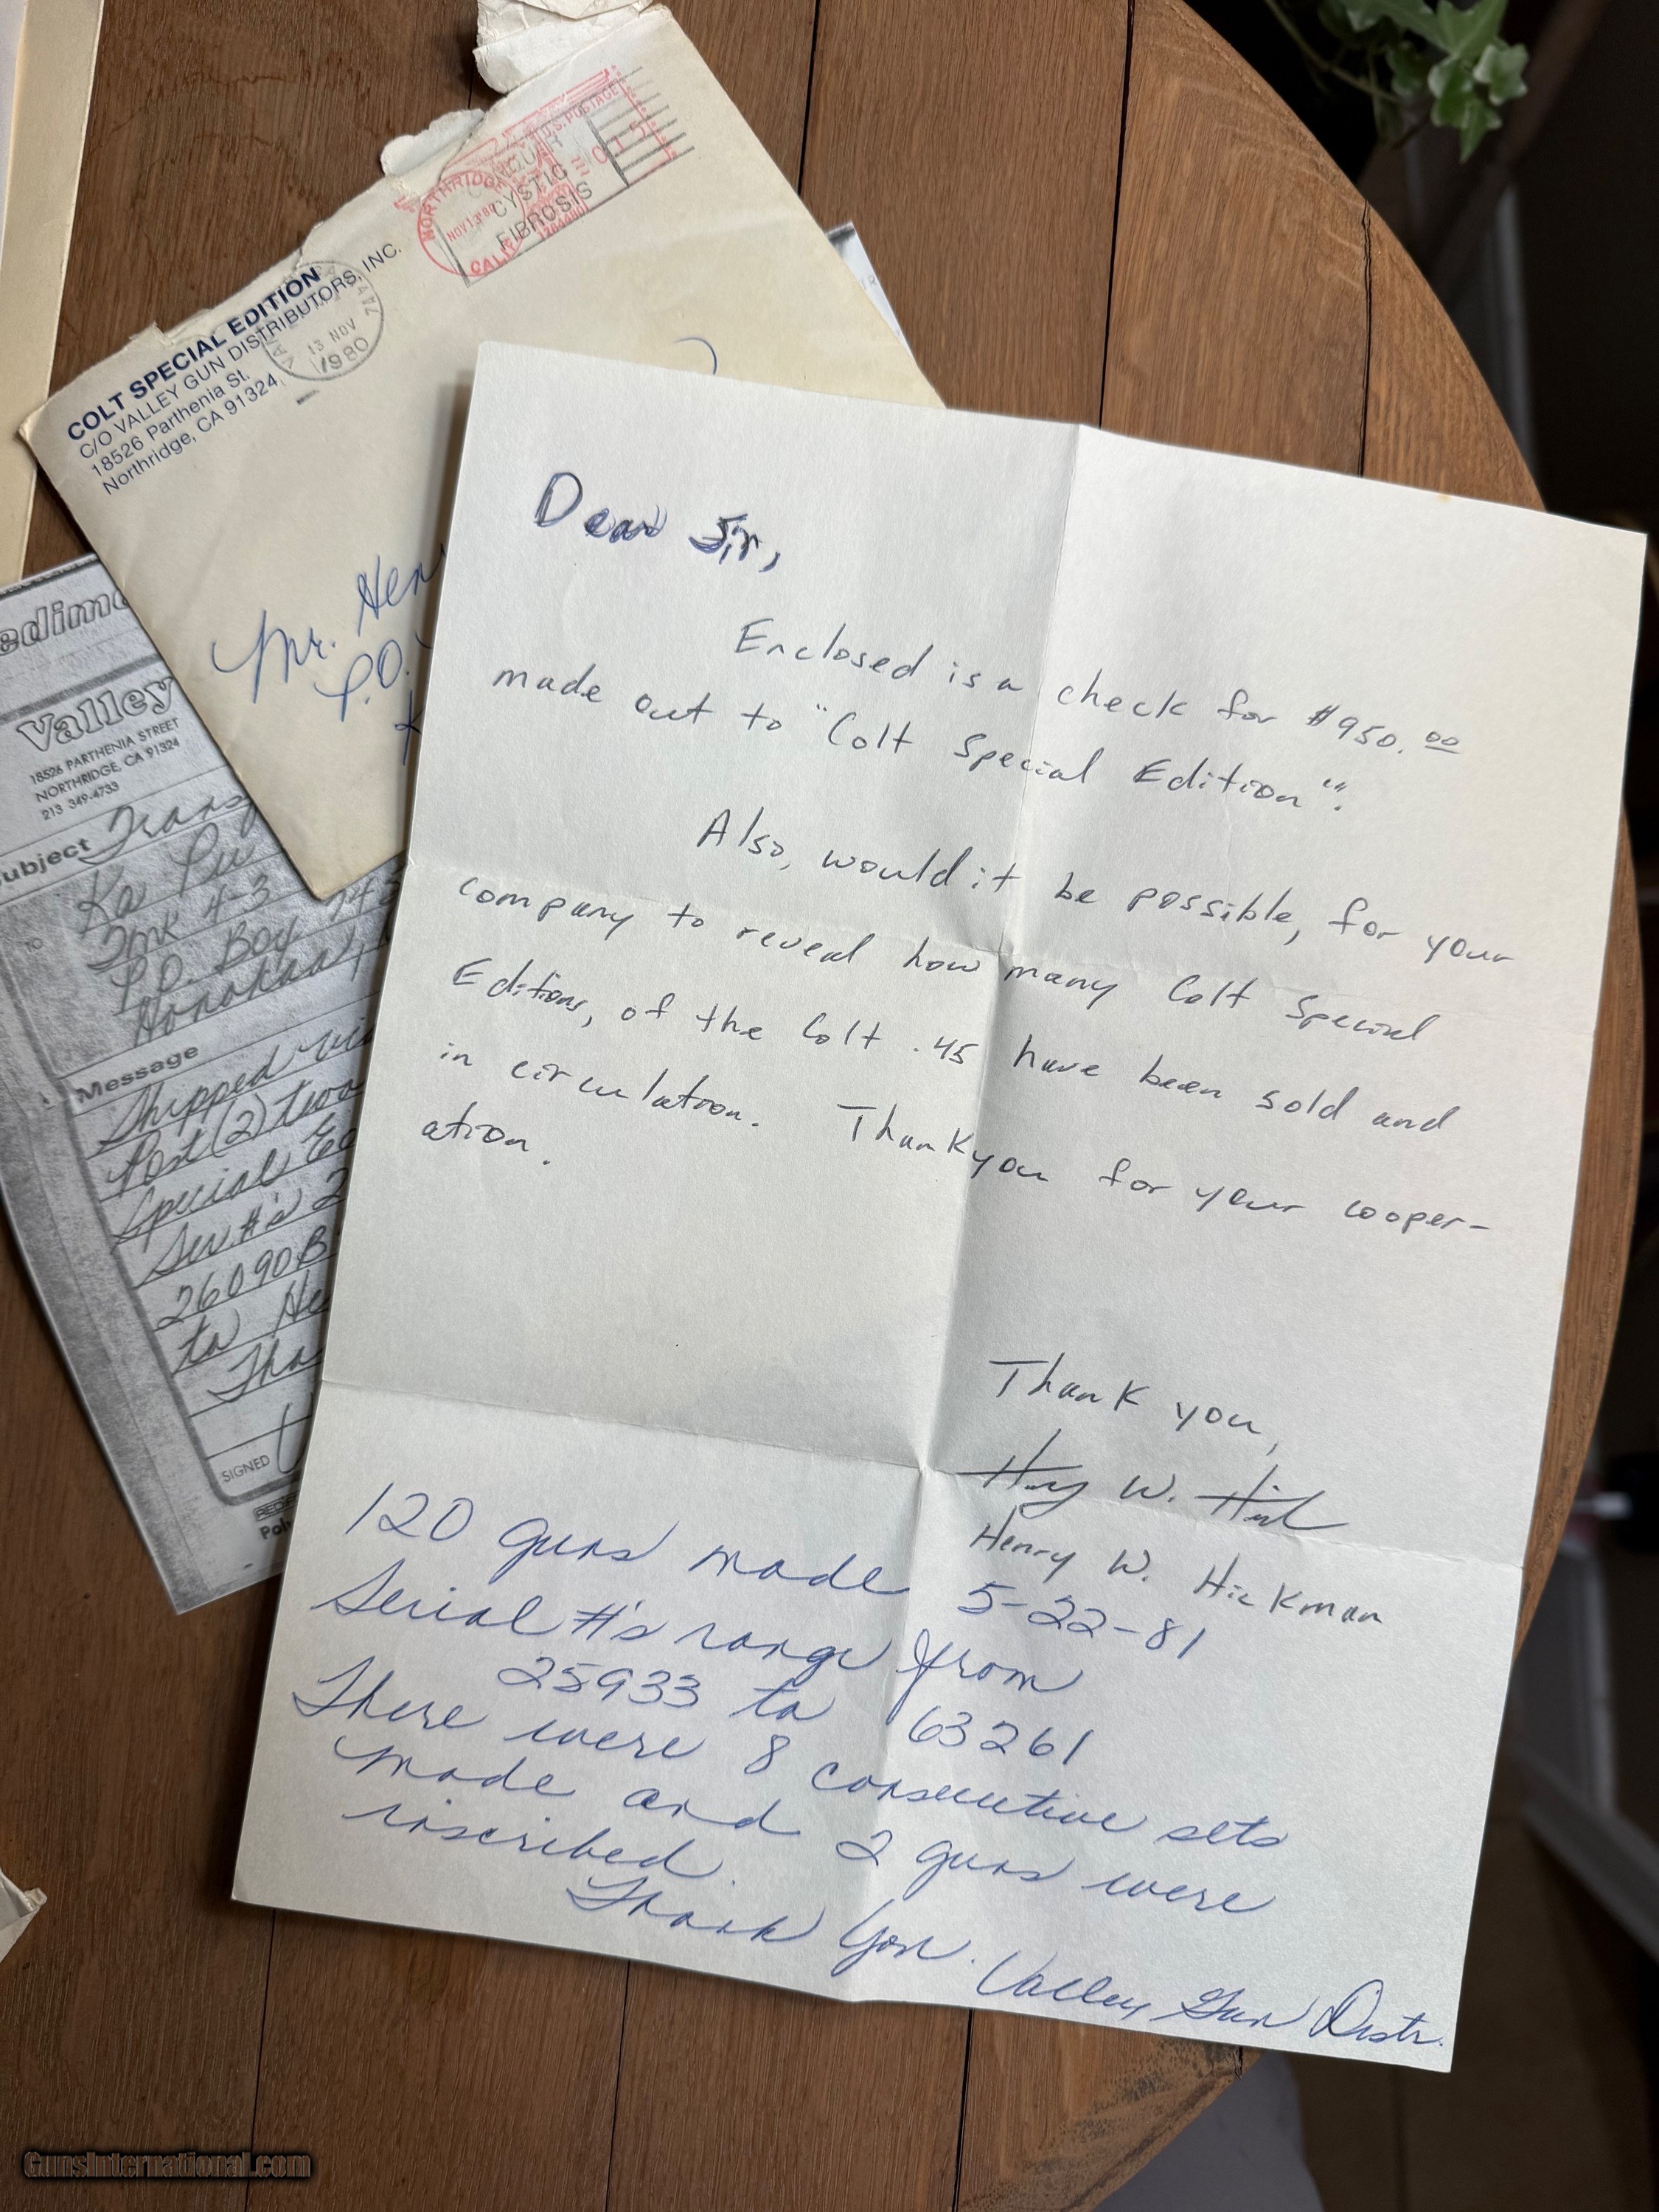 COLT SPECIAL EDITION
C/O VALLEY GUN DISTRIBUTORS, INC.
18526 Parthenia St.
Northridge, CA 91324
13 NOV
1980
NORTHRIDGE
NOV 13 '80
CALIF
U.S. POSTAGE
CYSTIC
FIBROSIS
Mr. Hen
P.O.
Valley
18526 PARTHENIA STREET
NORTHRIDGE, CA 91324
213 349-4733
Subject Trans
TO
P.O. Box
Message
Shipped via
Post (2) two
Special Ed
Ser #'s 2
26090B
to He
Tha
SIGNED
Dear Sir,
Enclosed is a check for $950.00
made out to "Colt Special Edition".
Also, would it be possible, for your
company to reveal how many Colt Special
Editions, of the Colt .45 have been sold and
in circulation. Thankyou for your cooper-
ation.
Thank you,
Henry W. Hickman
5-22-81
120 guns made
Serial #'s range from
25933 to 63261
There were 8 consecutive sets
made and 2 guns were
inscribed.
Thank You.
Valley Gun Distr.
GunsInternational.com